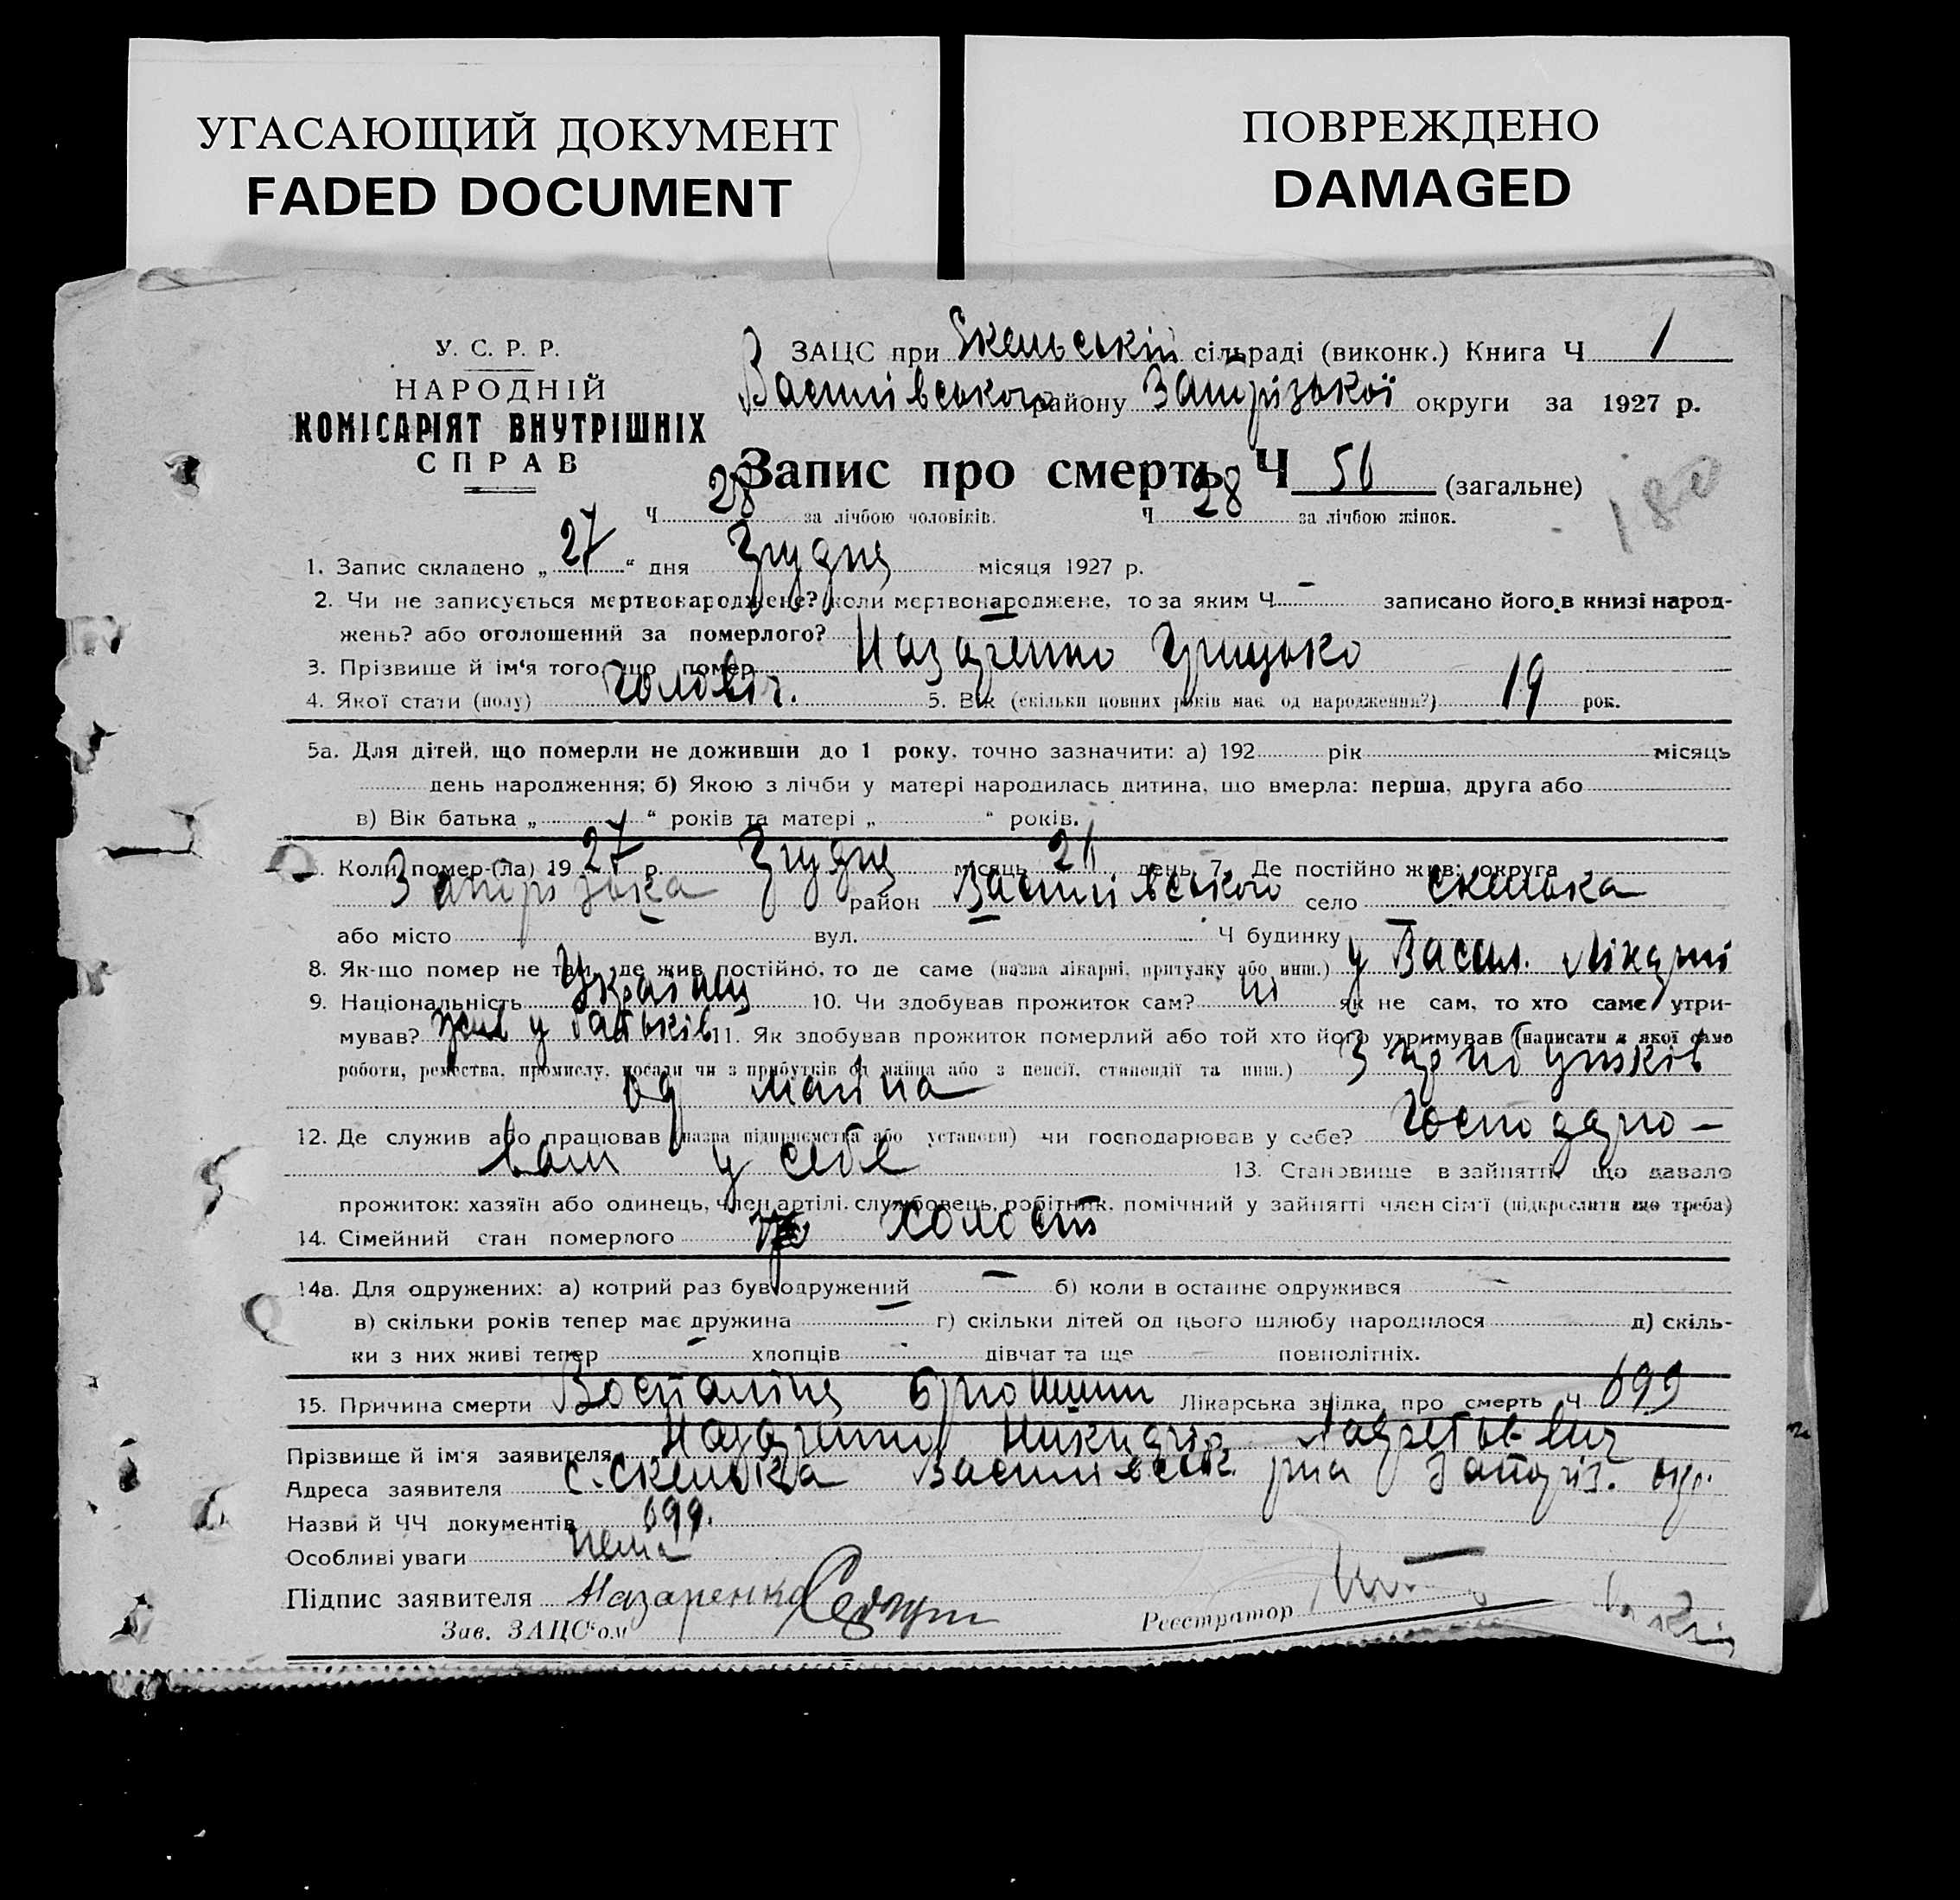 УГАСАЮЩИЙ ДОКУМЕНТ
FADED DOCUMENT
ПОВРЕЖДЕНО
DAMAGED
У. С. Р. Р.
НАРОДНІЙ
КОМІСАРІЯТ ВНУТРІШНІХ
СПРАВ
ЗАЦС при Скельській сільраді (виконк.) Книга Ч 1
Василівського району Запорізької округи за 1927 р.
Запис про смерть Ч 56 (загальне)
180
Ч 28 за лічбою чоловіків. Ч 28 за лічбою жінок.
1. Запис складено „ 27 “ дня Грудня місяця 1927 р.
2. Чи не записується мертвонароджене? коли мертвонароджене, то за яким Ч — записано його в книзі народ-
жень? або оголошений за померлого? —
3. Прізвище й ім'я того, що помер Назаренко Грицько
4. Якої стати (полу) Чоловіч. 5. Вік (скільки повних років має од народження?) 19 рок.
5а. Для дітей, що померли не доживши до 1 року, точно зазначити: а) 192 рік місяць
день народження; б) Якою з лічби у матері народилась дитина, що вмерла: перша, друга або
в) Вік батька „ “ років та матері „ “ років.
Коли помер-(ла) 19 27 р. Грудня місяць 26 день 7. Де постійно жив: округа
Запорізька район Василівського село Скелька
або місто вул. — Ч будинку —
8. Як-що помер не там, де жив постійно, то де саме (назва лікарні, притулку або инш.) у Васил. лікарні
9. Національність Українец 10. Чи здобував прожиток сам? ні як не сам, то хто саме утри-
мував? жив у батьків 11. Як здобував прожиток померлий або той хто його утримував (написати з якої само
роботи, ремества, промислу, посади чи з прибутків од майна або з пенсії, стипендії та инш.) З
од майна
12. Де служив або працював (назва підприємства або установи) чи господарював у себе? Господарю-
вали у себе 13. Становище в зайнятті, що давало
прожиток: хазяїн або одинець, член артілі, службовець, робітник, помічний у зайнятті член сім'ї (підкреслити що треба)
14. Сімейний стан померлого холост
14а. Для одружених: а) котрий раз був одружений — б) коли в останнє одружився —
в) скільки років тепер має дружина — г) скільки дітей од цього шлюбу народилося д) скіль-
ки з них живі тепер — хлопців дівчат та ще повнолітніх.
15. Причина смерти Воспаління брюшини Лікарська звідка про смерть Ч 699
Прізвище й ім'я заявителя Назаренко
Адреса заявителя с. Скелька Василівськ. р-на Запоріз. окр.
Назви й ЧЧ документів 699.
Особливі уваги нема
Підпис заявителя Назаренко
Зав. ЗАЦС'ом Реєстратор